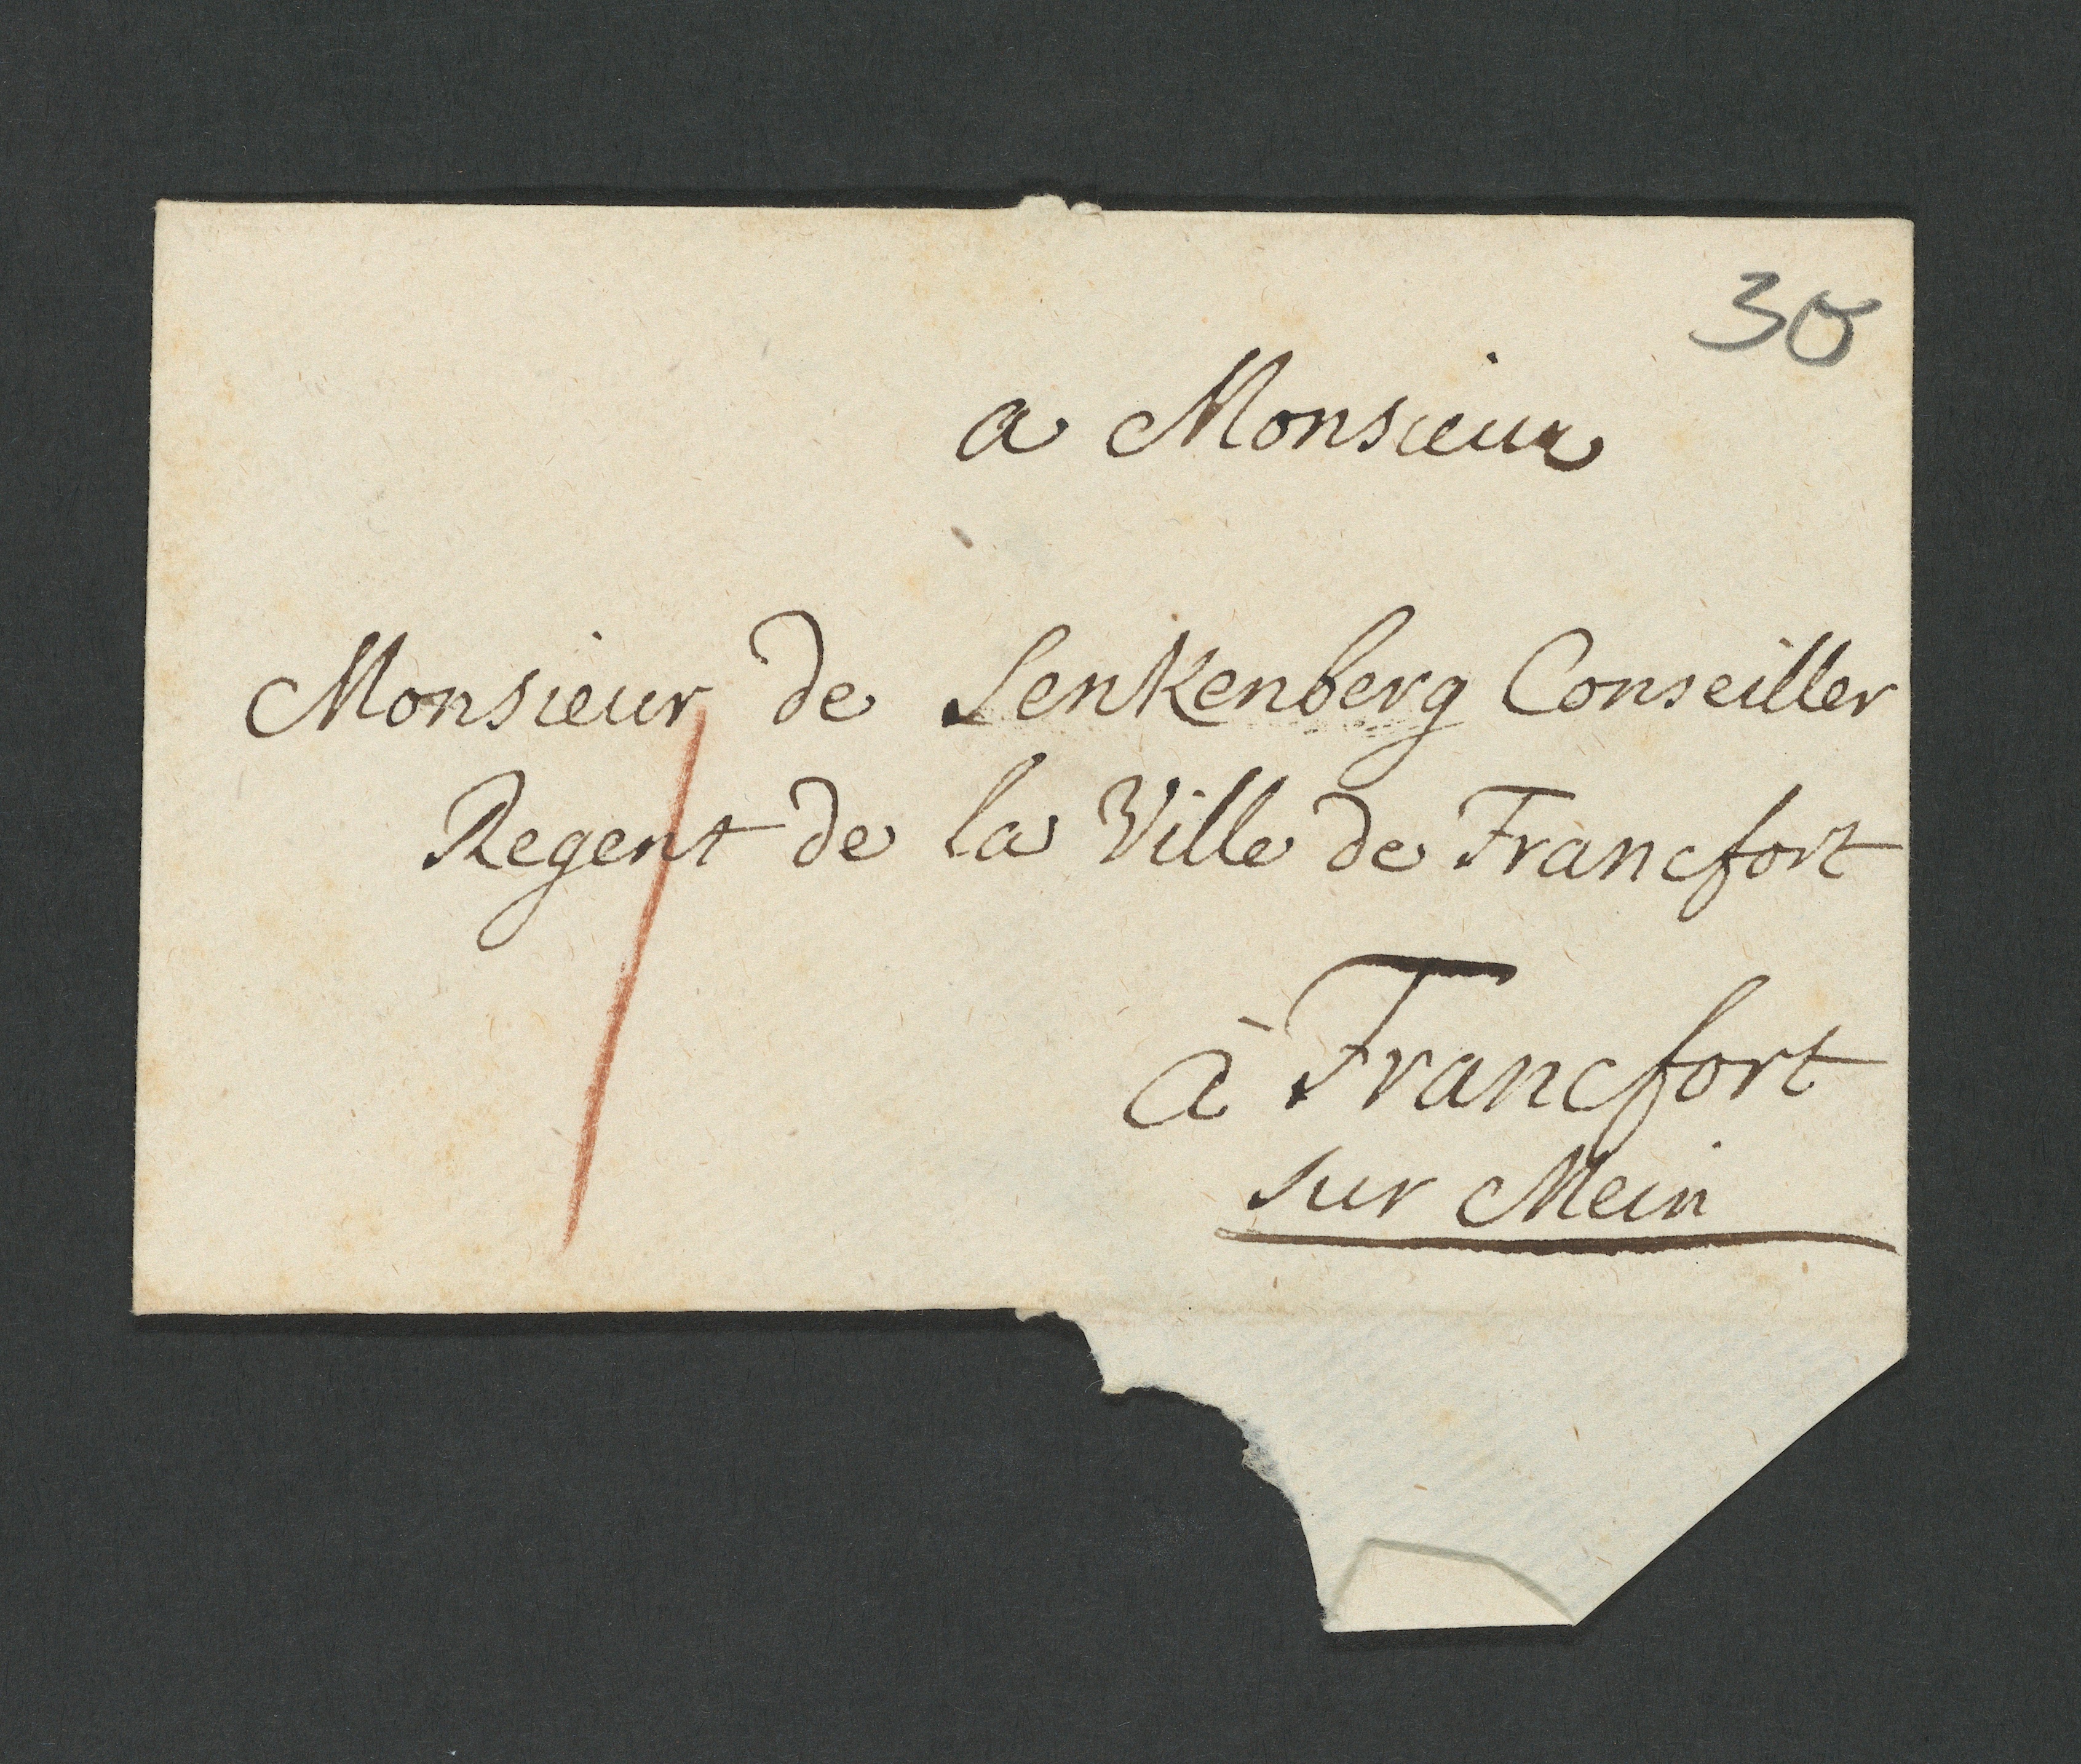 30
a Monsieur
Monsieur de Senkenberg Conseiller
Regent de la Ville de Francfort
à Francfort
sur Mein